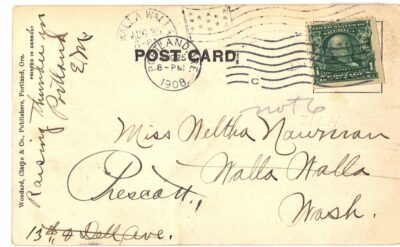 WALLA WALLA
PORTLAND, ORE.
8-PM
1908
POST CARD
C
Raising thunder in
Portland
E.M.
PRINTED IN GERMANY
Woodard, Clarke & Co., Publishers, Portland, Ore.
Miss Weltha Nawman
Walla Walla
Wash.
Prescott,
13th & Dell Ave.